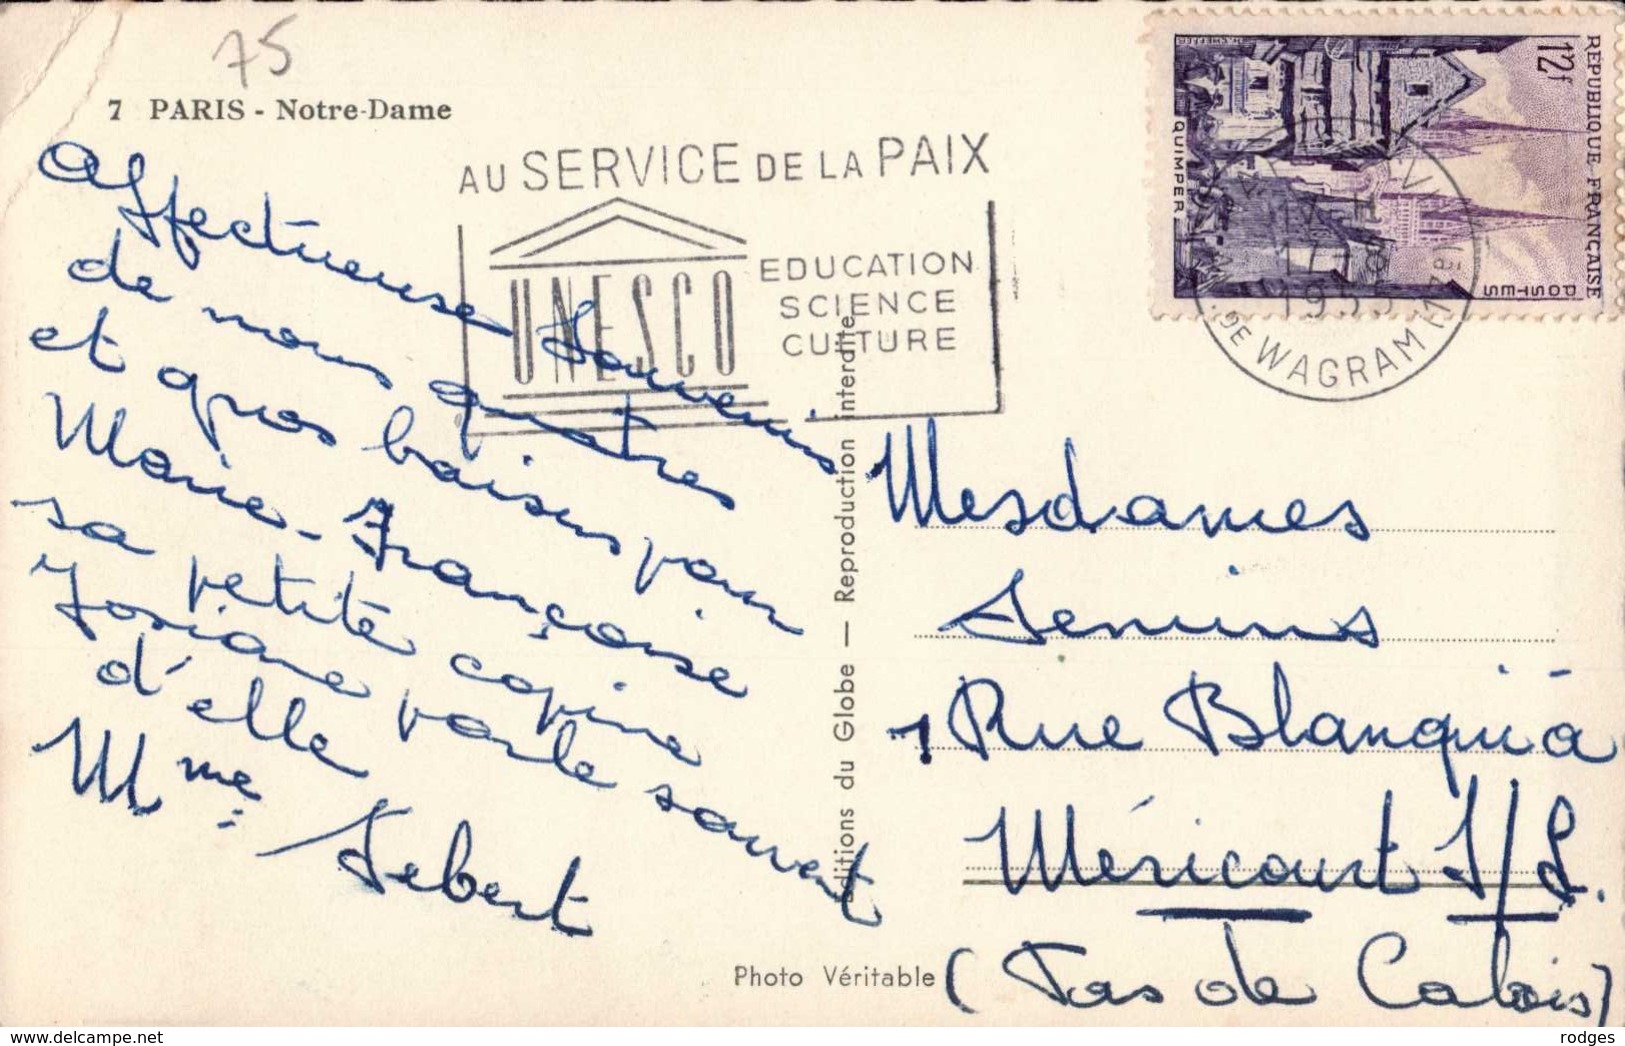 75
7 PARIS - Notre-Dame
AU SERVICE DE LA PAIX
UNESCO
EDUCATION
SCIENCE
CULTURE
REPUBLIQUE FRANÇAISE
12f
POSTES
QUIMPER
1955
DE WAGRAM (17è)
Affectueuse Souvenirs
de nous quatres
et gros baisers pour
Marie-Françoise
sa petite copine
Josiane parle souvent
d'elle
Mme Lebert
Editions du Globe — Reproduction interdite
Mesdames
1 Rue Blanqui à
Méricourt S/L.
(Pas de Calais)
Photo Véritable
rodges
delcampe.net